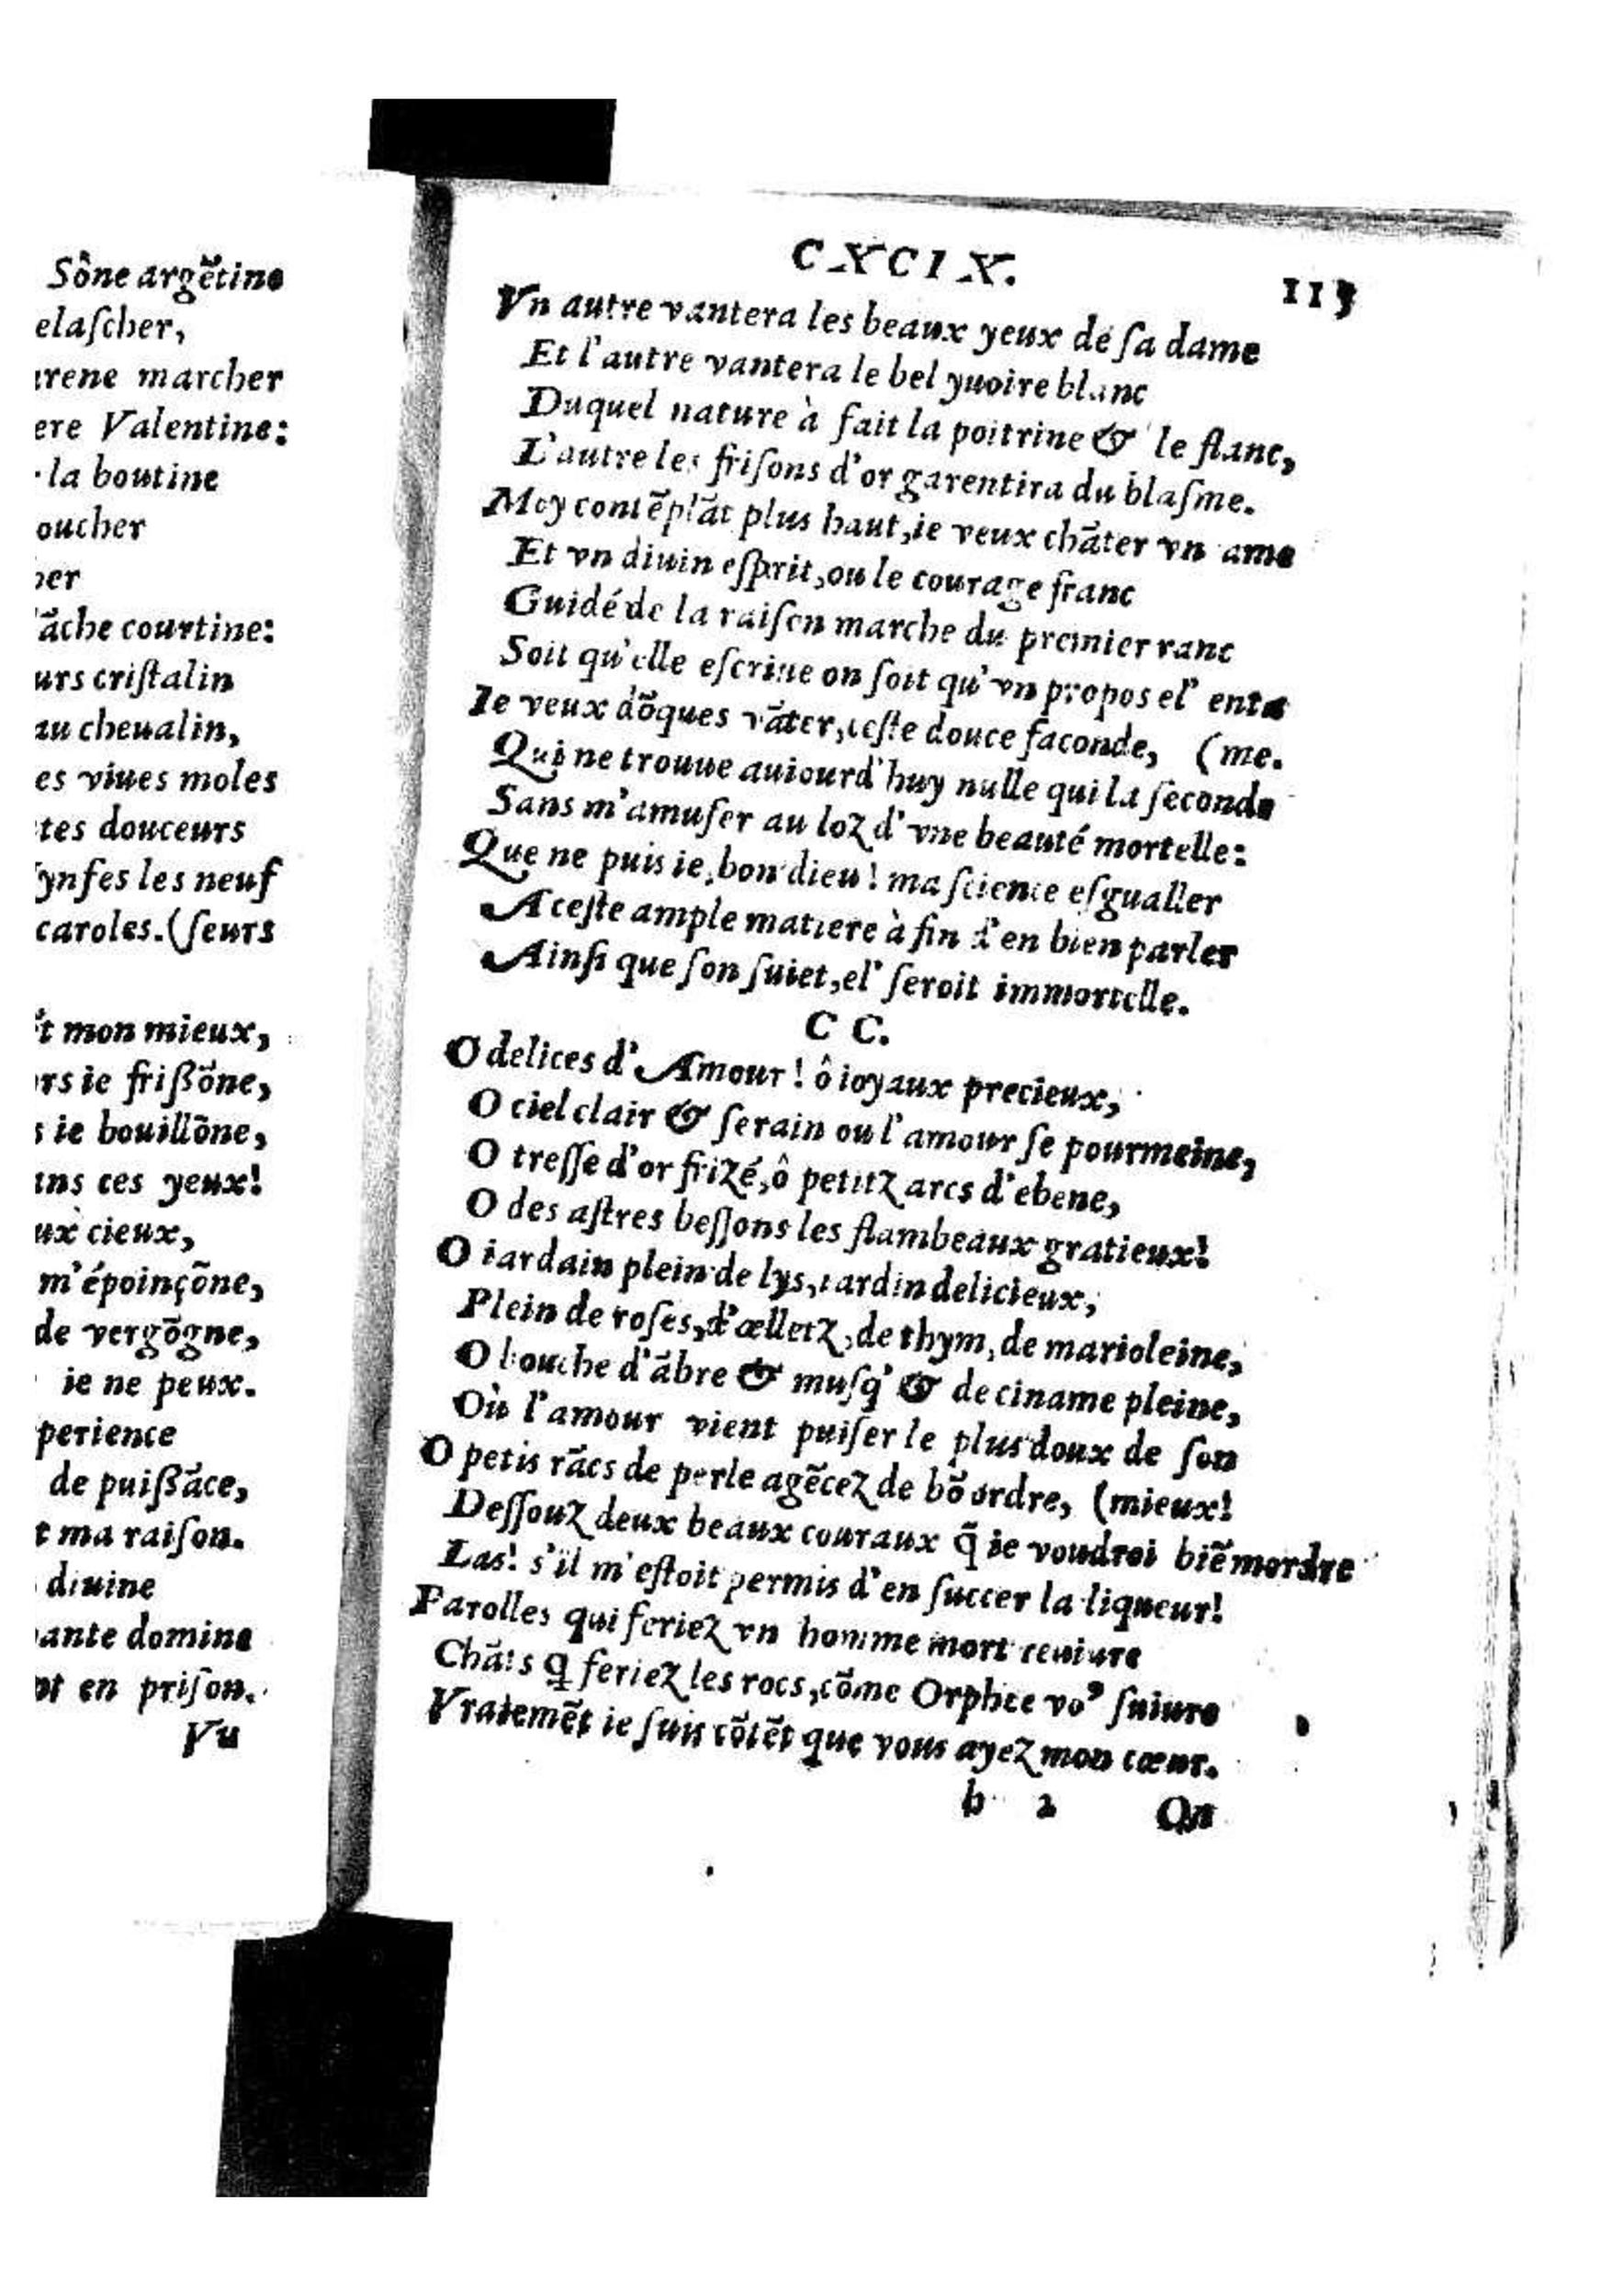 Sône argẽtine
elaſcher,
rene marcher
ere Valentine:
la boutine
oucher
her
ãche courtine:
urs criſtalin
au cheualin,
es viues moles
tes douceurs
ynfes les neuf
caroles. (ſeurs
t mon mieux,
rs ie frißõne,
s ie bouillõne,
ans ces yeux!
ux cieux,
m'époinçõne,
de vergõgne,
ie ne peux.
perience
de puißãce,
t ma raiſon.
diuine
ante domine
nt en priſon.
Vn
CXCIX.
113
Vn autre vantera les beaux yeux de ſa dame
Et l'autre vantera le bel yuoire blanc
Duquel nature à fait la poitrine & le flanc,
L'autre les friſons d'or garentira du blaſme.
Moy contẽplãt plus haut, ie veux chãter vn ame
Et vn diuin eſprit, ou le courage franc
Guidé de la raiſon marche du premier ranc
Soit qu'elle eſcriue on ſoit qu'vn propos el' enta
Ie veux dõques vãter, ceſte douce faconde, (me.
Qui ne trouue auiourd'huy nulle qui la ſeconde
Sans m'amuſer au loz d'vne beauté mortelle:
Que ne puis ie, bon dieu! ma ſcience eſgualler
A ceſte ample matiere à fin d'en bien parler
Ainſi que ſon ſuiet, el' ſeroit immortelle.
CC.
O delices d'Amour! ô ioyaux precieux,
O ciel clair & ſerain ou l'amour ſe pourmeine,
O treſſe d'or frizé, ô petitz arcs d'ebene,
O des aſtres beſſons les flambeaux gratieux!
O iardain plein de lys, iardin delicieux,
Plein de roſes, d'œlletz, de thym, de marioleine,
O bouche d'ãbre & muſq' & de ciname pleine,
Où l'amour vient puiſer le plus doux de ſon
O petis rãcs de perle agẽcez de bõ ordre, (mieux!
Deſſouz deux beaux couraux q̃ ie voudroi biẽ mordre
Las! s'il m'eſtoit permis d'en ſuccer la liqueur!
Parolles qui feriez vn homme mort reuiure
Chãts q feriez les rocs, cõme Orphee voꝰ ſuiure
Vraiemẽt ie ſuis cõtẽt que vous ayez mon cœur.
h 2
On